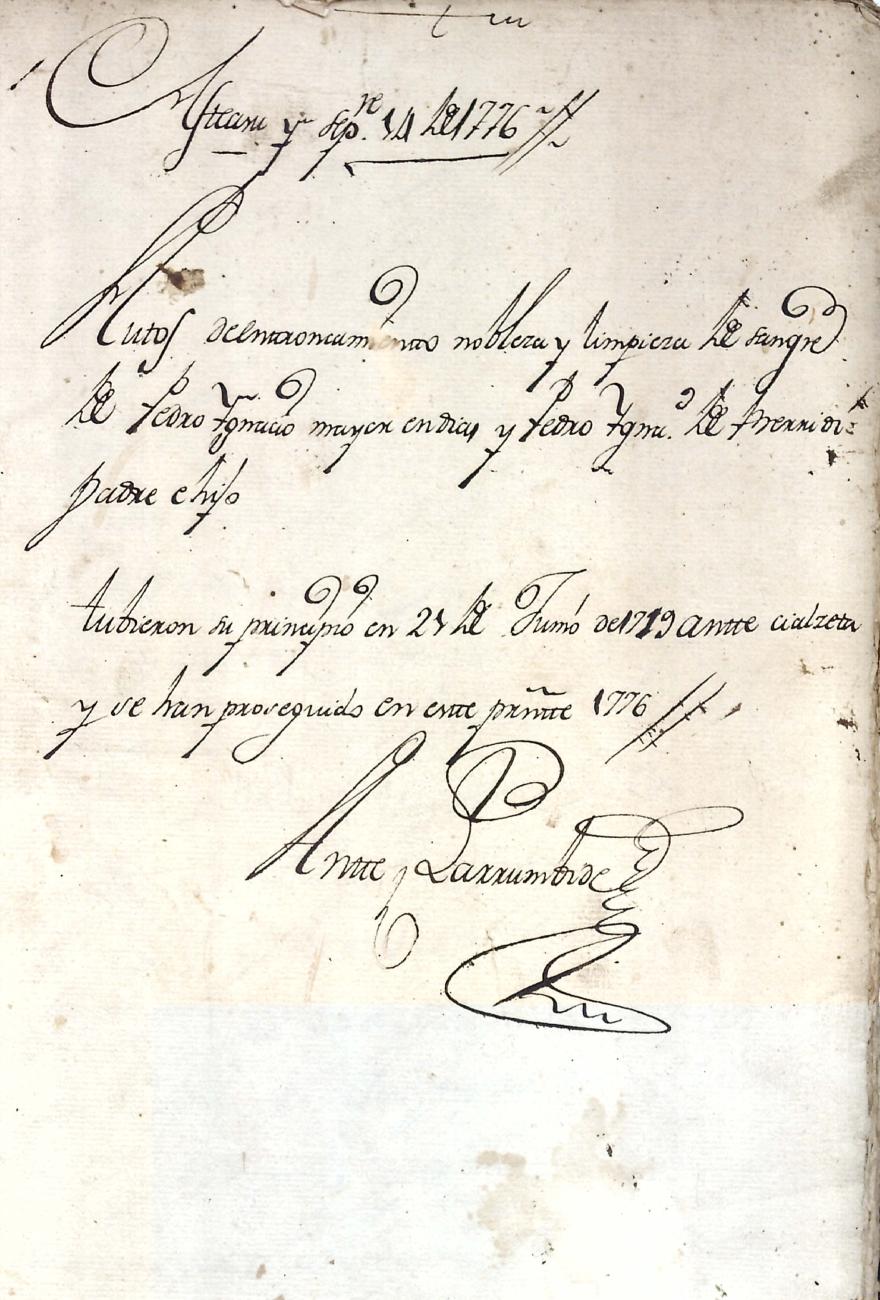 Asteasu y sepre. 14 de 1776
Autos de entroncamiento nobleza y limpieza de sangre
de Pedro Ygnacio mayor en dias y Pedro Ygna.º de
padre e hijo
tubieron su principio en 21 de Junio de 1719 antte
y se han proseguido en este prntte 1776
Antte Larrumbide